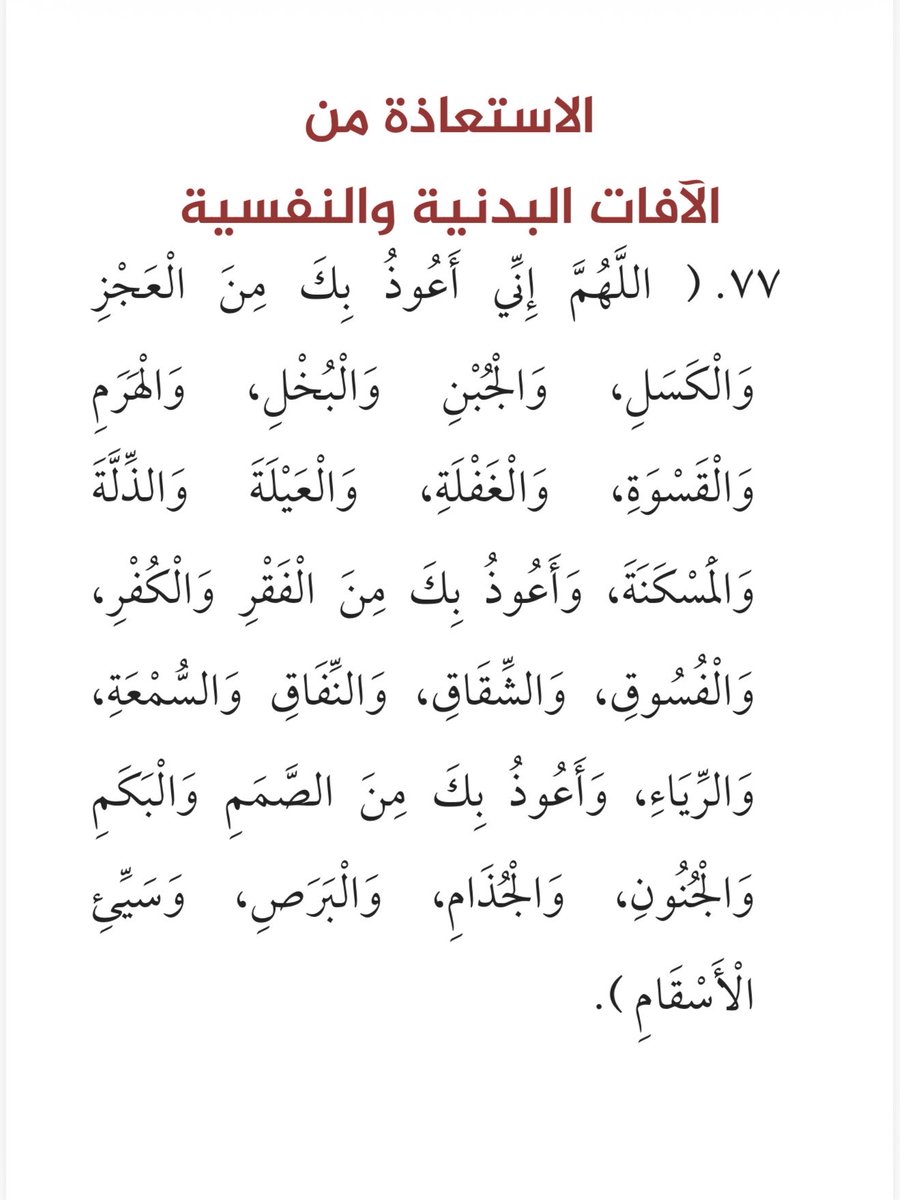 الاستعاذة من
الآفات البدنية والنفسية
٧٧. ( اللَّهُمَّ إِنِّي أَعُوذُ بِكَ مِنَ الْعَجْزِ
وَالْكَسَلِ، وَالْجُبْنِ وَالْبُخْلِ، وَالْهَرَمِ
وَالْقَسْوَةِ، وَالْغَفْلَةِ، وَالْعَيْلَةَ وَالذِّلَّةَ
وَالْمَسْكَنَةَ، وَأَعُوذُ بِكَ مِنَ الْفَقْرِ وَالْكُفْرِ،
وَالْفُسُوقِ، وَالشِّقَاقِ، وَالنِّفَاقِ وَالسُّمْعَةِ،
وَالرِّيَاءِ، وَأَعُوذُ بِكَ مِنَ الصَّمَمِ وَالْبَكَمِ
وَالْجُنُونِ، وَالْجُذَامِ، وَالْبَرَصِ، وَسَيِّئِ
الْأَسْقَامِ ).